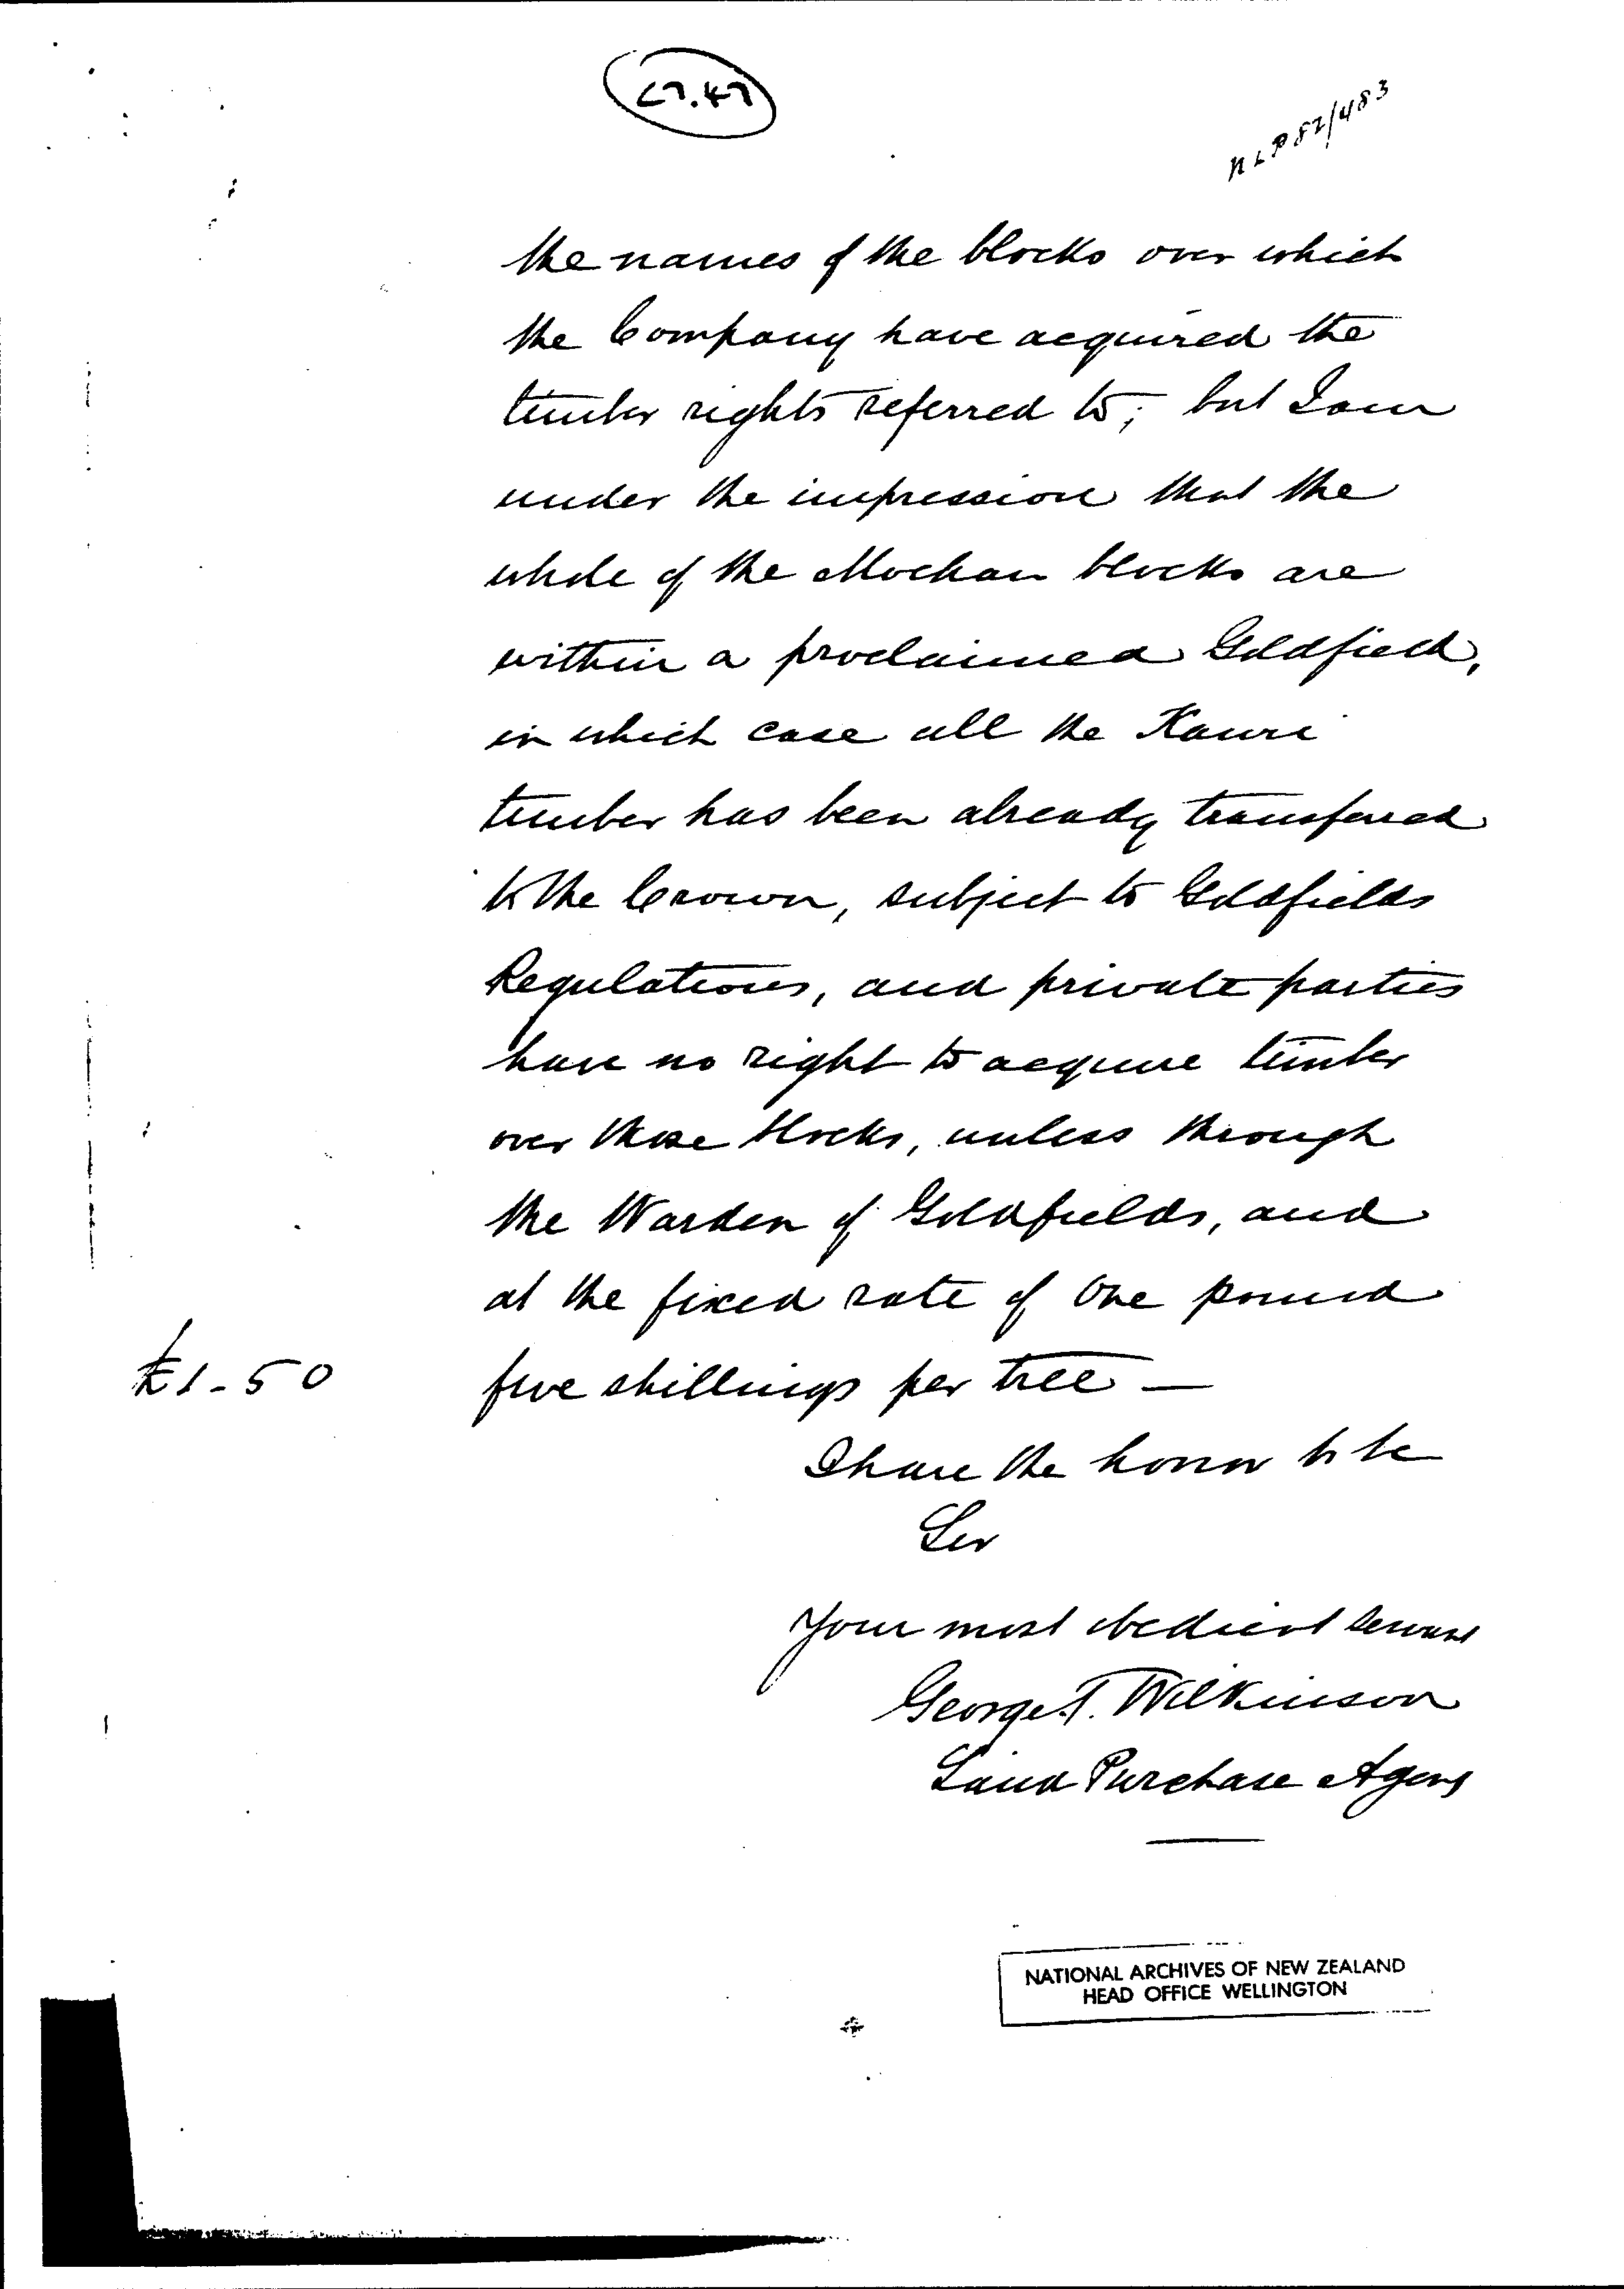 27.47
NLP 82/483
the names of the blocks over which
the Company have acquired the
timber rights referred to; but I am
under the impression that the
whole of the Moehau blocks are
within a proclaimed Goldfield,
in which case all the Kauri
timber has been already transferred
to the Crown, subject to Goldfields
Regulations, and private parties
have no right to acquire timber
over those blocks, unless through
the Warden of Goldfields, and
at the fixed rate of One pound
£1-5-0 five shillings per tree —
I have the honor to be
Sir
Your most obedient servant
George T. Wilkinson
Land Purchase Agent
NATIONAL ARCHIVES OF NEW ZEALAND
HEAD OFFICE WELLINGTON